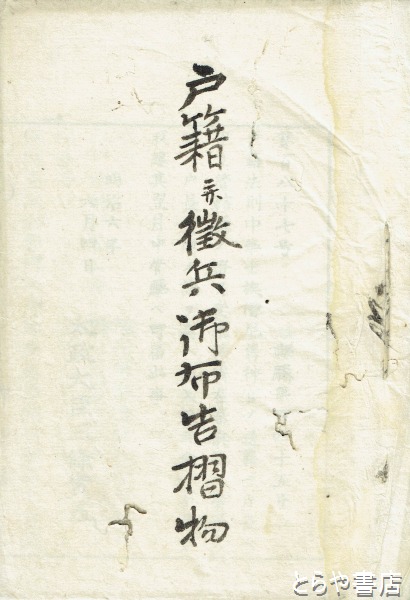 戸籍並徴兵御布告摺物
とらや書店